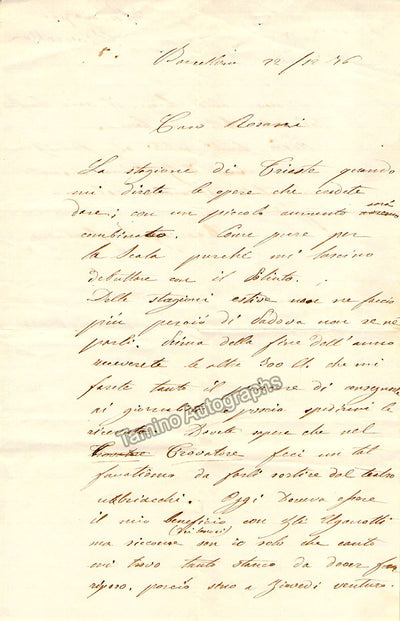 Barcellona 12/12 76
Caro Rosani
La stagione di Trieste quando
mi direte le opere che credete
dare; con un piccolo aumento sarà
combinato. Come pure per
la Scala purché mi lascino
debuttare con il Poliuto.
Delle stagioni estive non ne faccio
più perciò di Padova non se ne
parli. Prima della fine dell'anno
riceverete le altre 300 ll. che mi
farete tanto il piacere di consegnare
ai giornalisti e poscia spedirmi le
ricevute. Dovete sapere che nel
Trovatore feci un tal
fanatismo da farli sortire dal teatro
ubbriachi. Oggi doveva essere
il mio beneficio con Gli Ugonotti
ma siccome son io solo che canto
(dei tenori)
mi trovo tanto stanco da dover far
riposo, perciò sino a Giovedì venturo.
Tamino Autographs